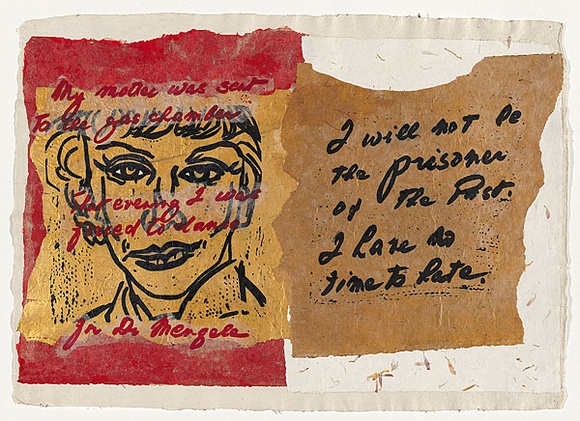 My mother was sent
to the gas chamber
That evening I was
forced to dance
for Dr Mengele
I will not be
the prisoner
of the Past.
I have no
time to hate.